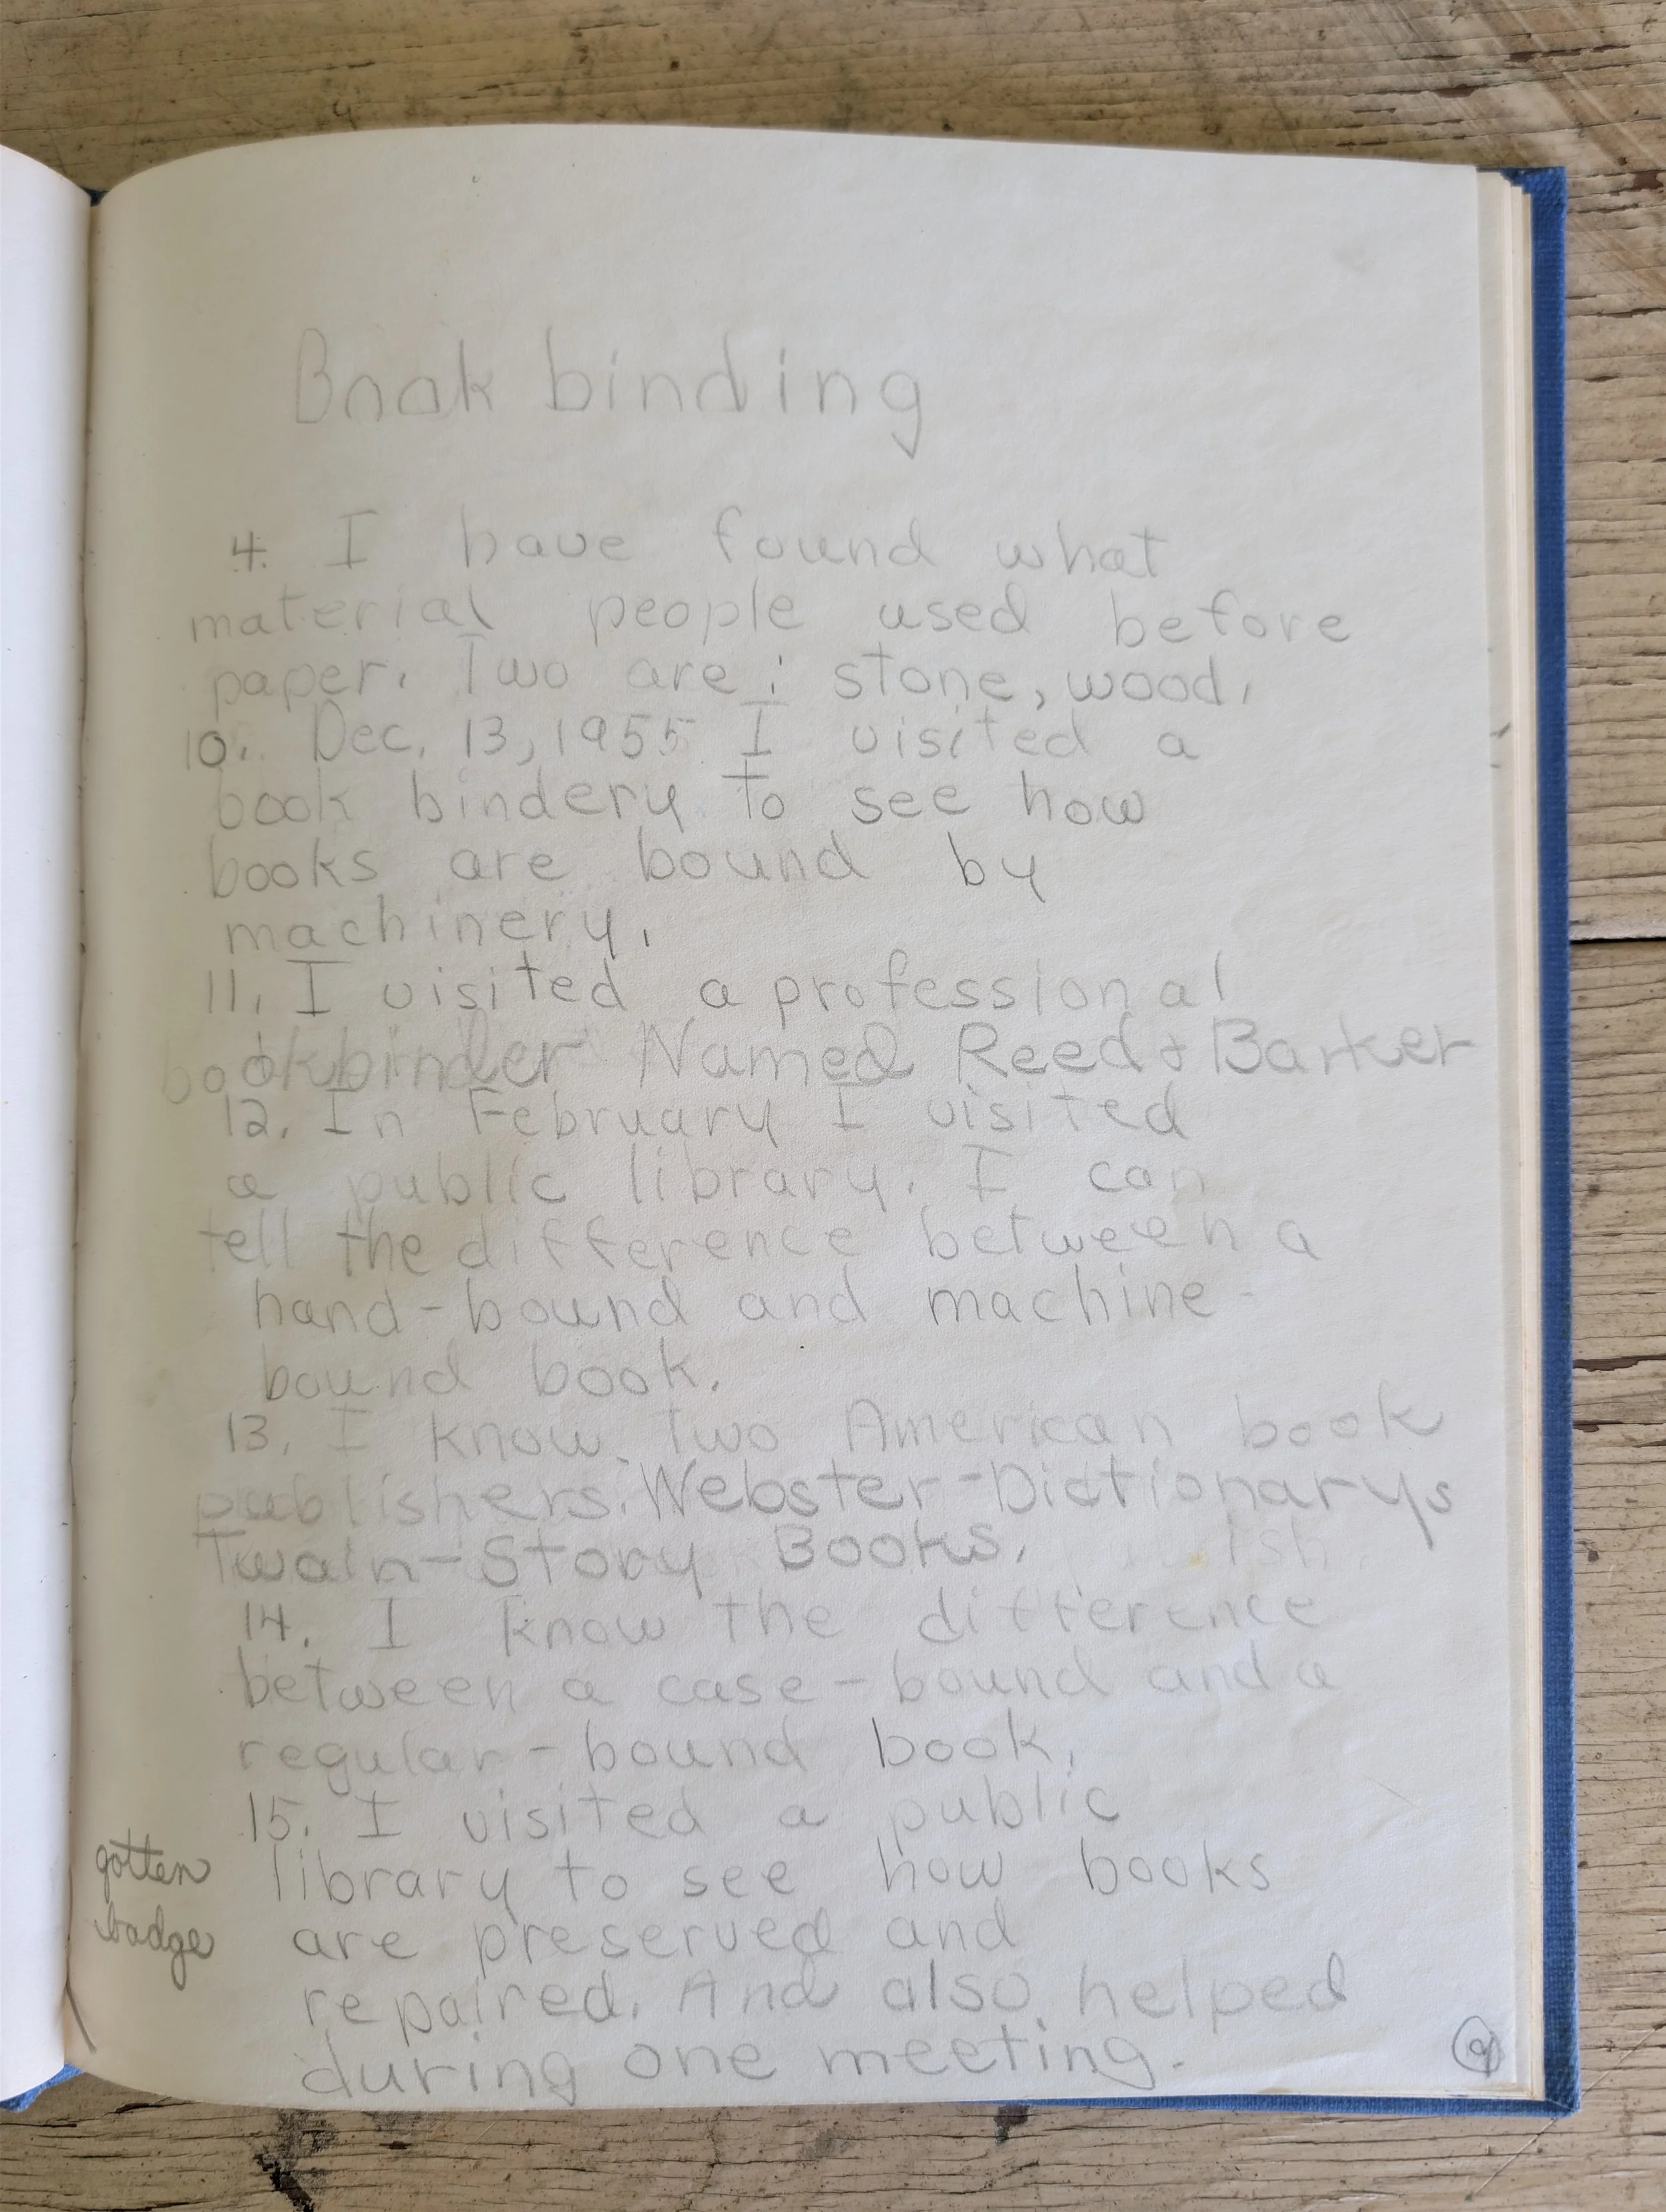 Book binding
4. I have found what
material people used before
paper. Two are: stone, wood.
10. Dec. 13, 1955 I visited a
book bindery to see how
books are bound by
machinery.
11. I visited a professional
bookbinder Named Reed & Barker
12. In February I visited
a public library. I can
tell the difference between a
hand-bound and machine-
bound book.
13. I know two American book
publishers. Webster-Dictionarys
Twain-Story Books.
14. I know the difference
between a case-bound and a
regular-bound book.
15. I visited a public
library to see how books
are preserved and
repaired. And also helped
during one meeting.
gotten
badge
9